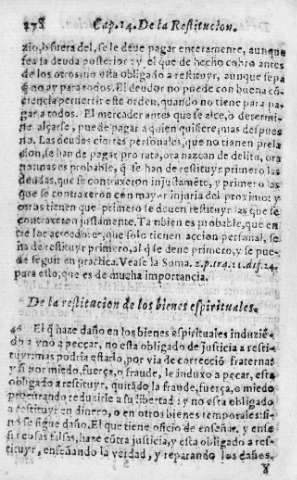 278 Cap. 14. De la Restitucion.
zio, o fuera del, se le deve pagar enteramente, aunque
sea la deuda posterior: y el que de hecho cobró antes
de los otros, no està obligado a restituyr, aunque sepa
q̃ no ay para todos. El deudor no puede con buena cõ
ciencia pervertir este orden, quando no tiene para pa-
gar a todos. El mercader antes que se alce, o determi-
ne alçarse, puede pagar a quien quisiere, mas despues
no. Las deudas ciertas personales, que no tienen prela
cion, se han de pagar pro rata, ora nazcan de delito, ora
no: mas es probable, q̃ se han de restituyr primero las
deudas, que se contraxeron injustamẽte, y primero las
que se contraxeron con mayor injuria del proximo: y
otros tienen que primero se deuen restituyr las que se
contraxeron justamente. Tambien es probable, que en
tre los acreedores, que solo tienen accion personal, se
ha de restituyr primero, al q̃ se deve primero, y se pue-
de seguir en practica. Vease la Suma. 2. p. tra. 11. dif. 24.
para esto, que es de mucha importancia.
De la restitucion de los bienes espirituales.
46 El q̃ haze daño en los bienes espirituales induziẽ-
do a vno a peccar, no està obligado de justicia a resti-
tuyr: mas podria estarlo, por via de correcciõ fraterna:
y si por miedo, fuerça, o fraude, le induxo a pecar, està
obligado a restituyr, quitãdo la fraude, fuerça, o miedo
procurando reduzirle a su libertad: y no està obligado
a restituyr en dinero, o en otros bienes temporales: si
no se sigue daño. El que tiene oficio de enseñar, y ense
ña cosas falsas, haze cõtra justicia, y està obligado a res-
tituyr, enseñando la verdad, y reparando los daños.